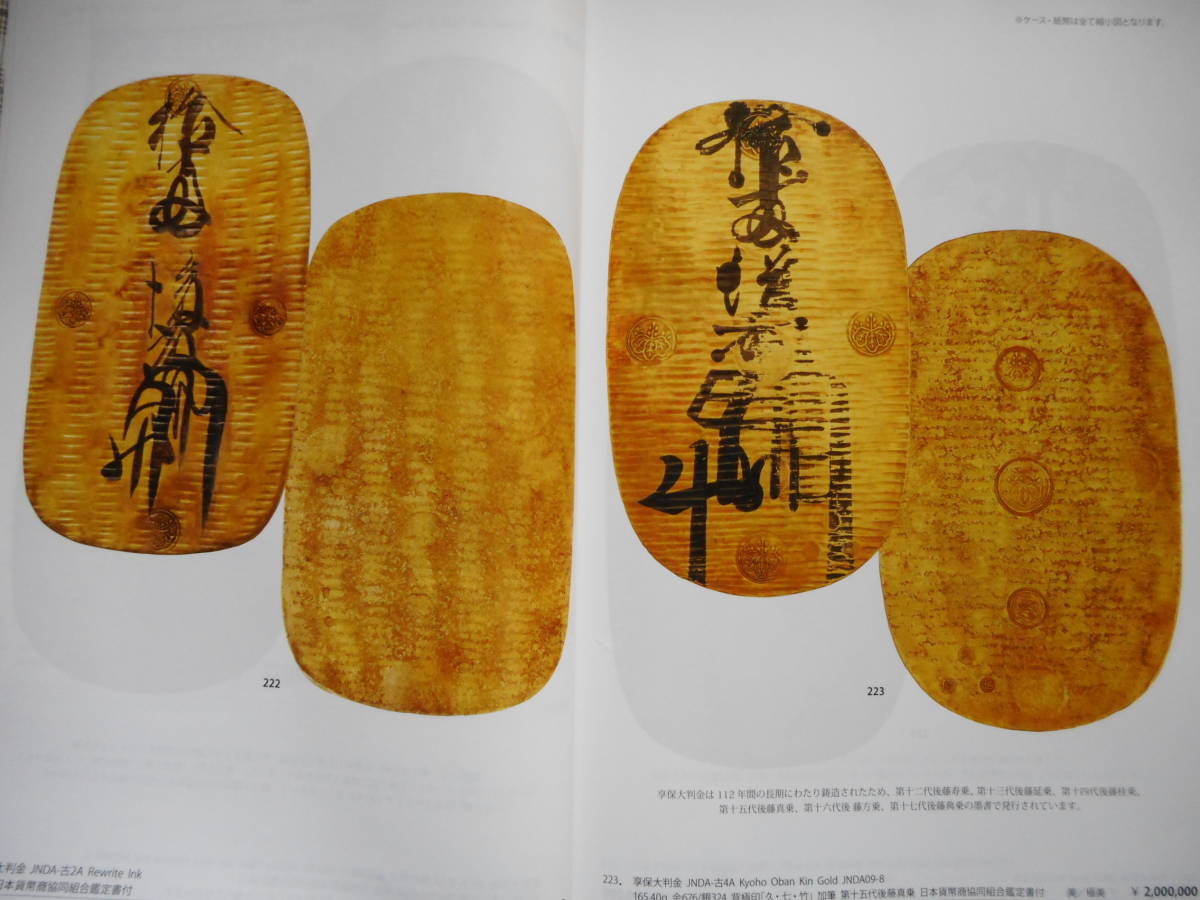 ※ケース・紙幣は全て縮小図となります。
222
223
享保大判金は112年間の長期にわたり鋳造されたため、第十二代後藤寿乗、第十三代後藤延乗、第十四代後藤桂乗、
第十五代後藤真乗、第十六代後 藤方乗、第十七代後藤典乗の墨書で発行されています。
大判金 JNDA-古2A Rewrite Ink
日本貨幣商協同組合鑑定書付
223. 享保大判金 JNDA-古4A Kyoho Oban Kin Gold JNDA09-8
165.40g 金676/銀324 背極印「久・七・竹」加筆 第十五代後藤真乗 日本貨幣商協同組合鑑定書付 美/極美 ¥ 2,000,000